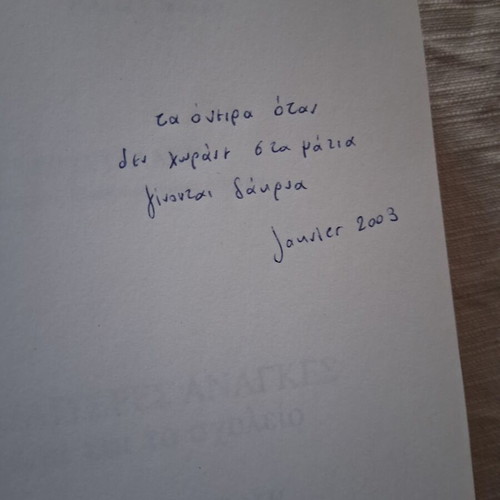 τα όνειρα όταν
δεν χωράνε στα μάτια
γίνονται δάκρυα
Janvier 2003
ΑΝΑΓΚΕΣ
και το σχολείο